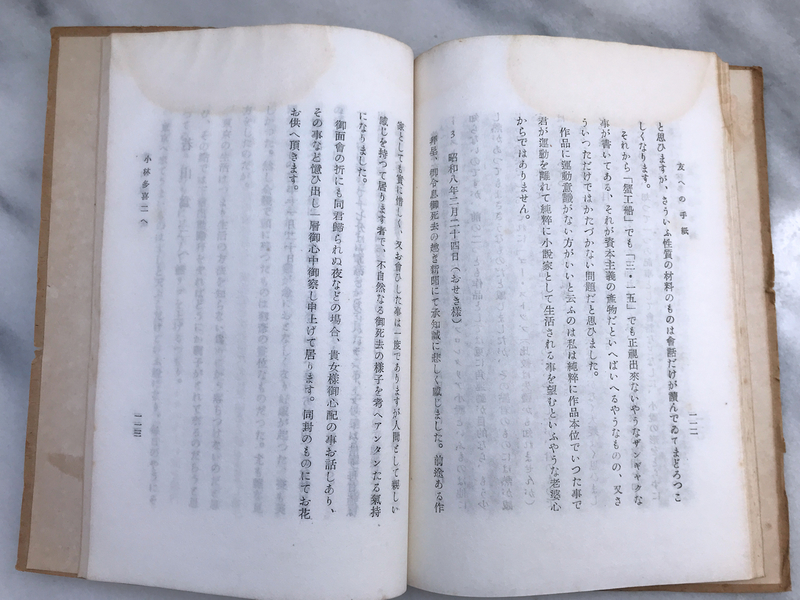 友への手紙
一二二
と思ひますが、さういふ性質の材料のものは會話だけが讀んでゐてまどろつこ
しくなります。
それから「蟹工船」でも「三・一五」でも正視出來ないやうなザンギャクな
事が書いてある、それが資本主義の產物だといへばいへるやうなものの、又さ
ういつただけではかたづかない問題だと思ひました。
作品に運動意識がない方がいいと云ふのは私は純粹に作品本位でいつた事で
君が運動を離れて純粹に小說家として生活される事を望むといふやうな老婆心
からではありません。
3 昭和八年二月二十四日(おせき樣)
拜呈、御令息御死去の趣き新聞にて承知誠に悲しく感じました。前途ある作
家としても實に惜しく、又お會ひした事は一度でありますが人間として親しい
感じを持つて居ります者で、不自然なる御死去の樣子を考へアンタンたる氣持
になりました。
御面會の折にも同君歸られぬ夜などの場合、貴女樣御心配の事お話しあり、
その事など憶ひ出し一層御心中御察し申上げて居ります。同封のものにてお花
お供へ頂きます。
小林多喜二へ
一二三